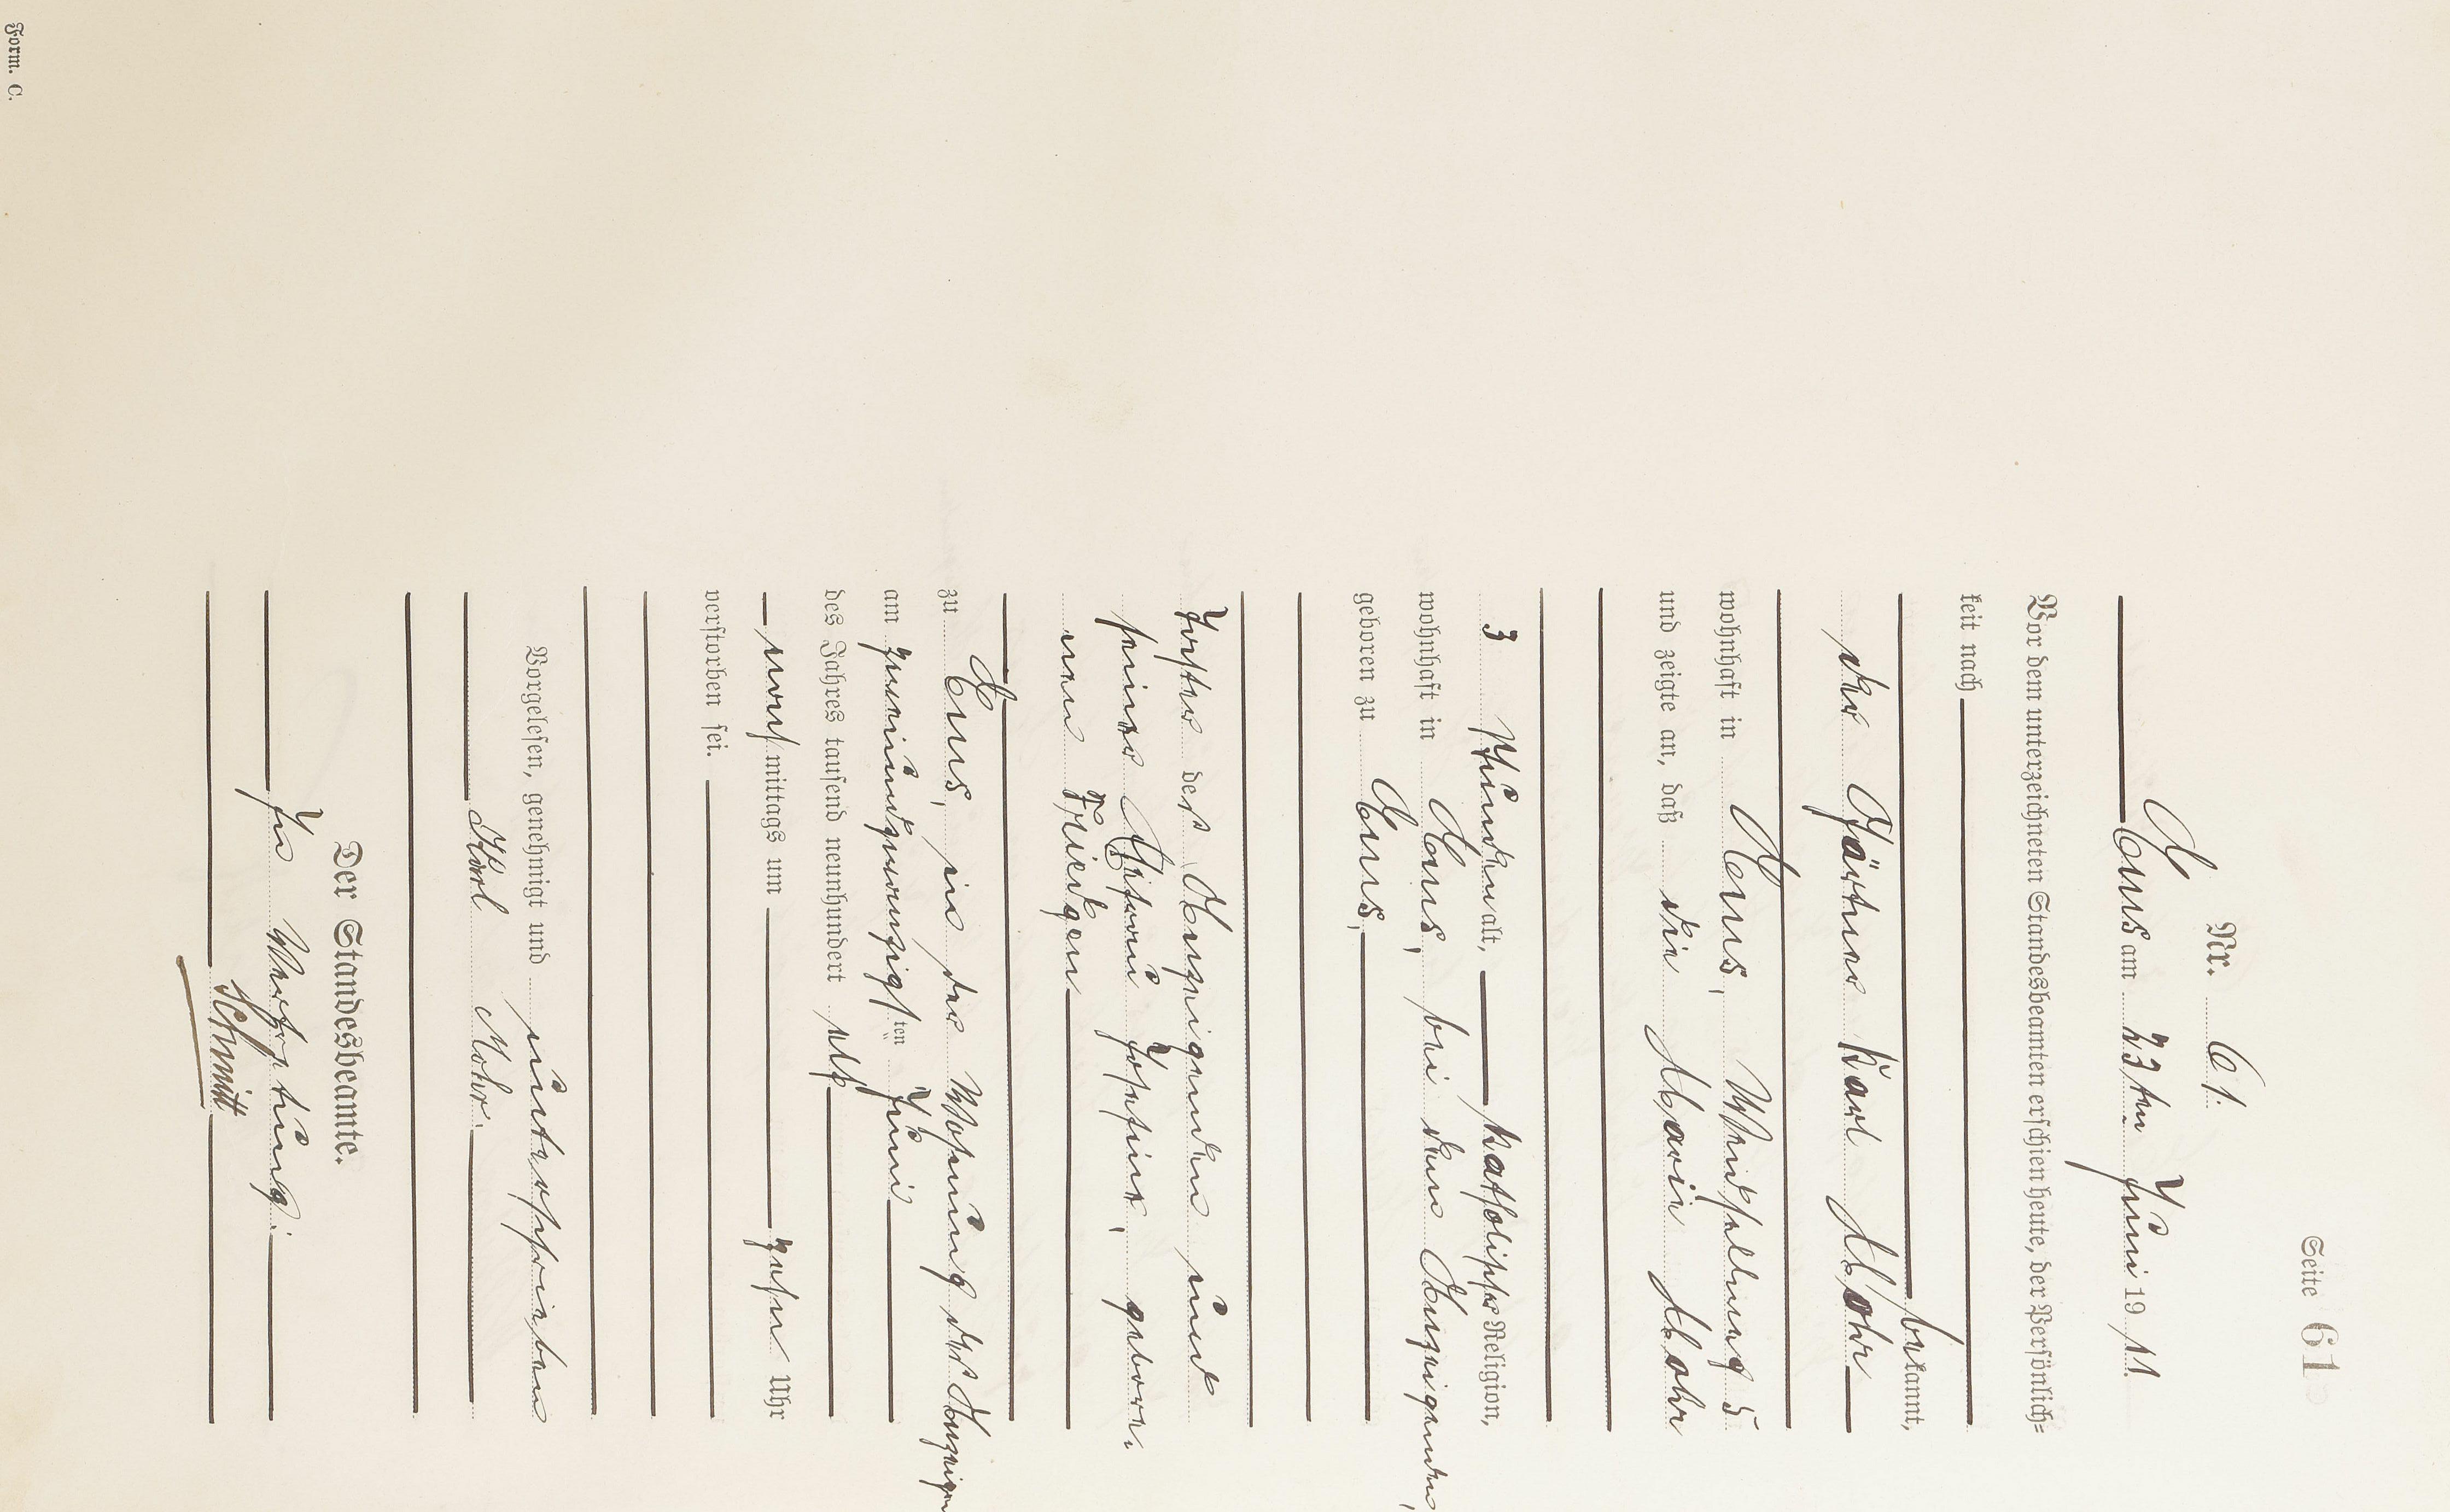 Seite 61
Nr. 61.
Ems am 23ten Juni 1911.
Vor dem unterzeichneten Standesbeamten erschien heute, der Persönlich=
keit nach
bekannt,
der Gärtner Karl Mohr
wohnhaft in Ems, 5
und zeigte an, daß die Marie Mohr
3 Stunden alt, katholischer Religion,
wohnhaft in Ems, bei dem Anzeigenden,
geboren zu Ems,
Tochter des Anzeigenden und
seiner Ehefrau Josefine, gebore-
nen Friedgen
zu Ems, in der Wohnung des Anzeigen
am zweiundzwanzigsten Juni
des Jahres tausend neunhundert elf
nachmittags um zehn Uhr
verstorben sei.
Vorgelesen, genehmigt und unterschrieben
Karl Mohr.
Der Standesbeamte.
In Vertretung:
Schmitt
Form. C.